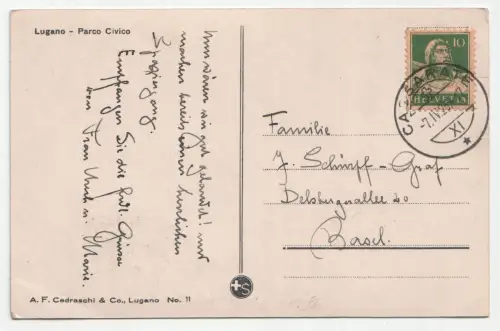 Lugano - Parco Civico
Nun wären wir gut gelandet! und
machen bereits einen herrlichen
Spaziergang.
Empfangen Sie die frdl. Grüsse
von Frau u.
Marie.
10
HELVETIA
CASSARATE
XI
Familie
J. Schürpf-Graf
Delsbergerallee 20
Basel.
A. F. Cedraschi & Co., Lugano No. 11
S